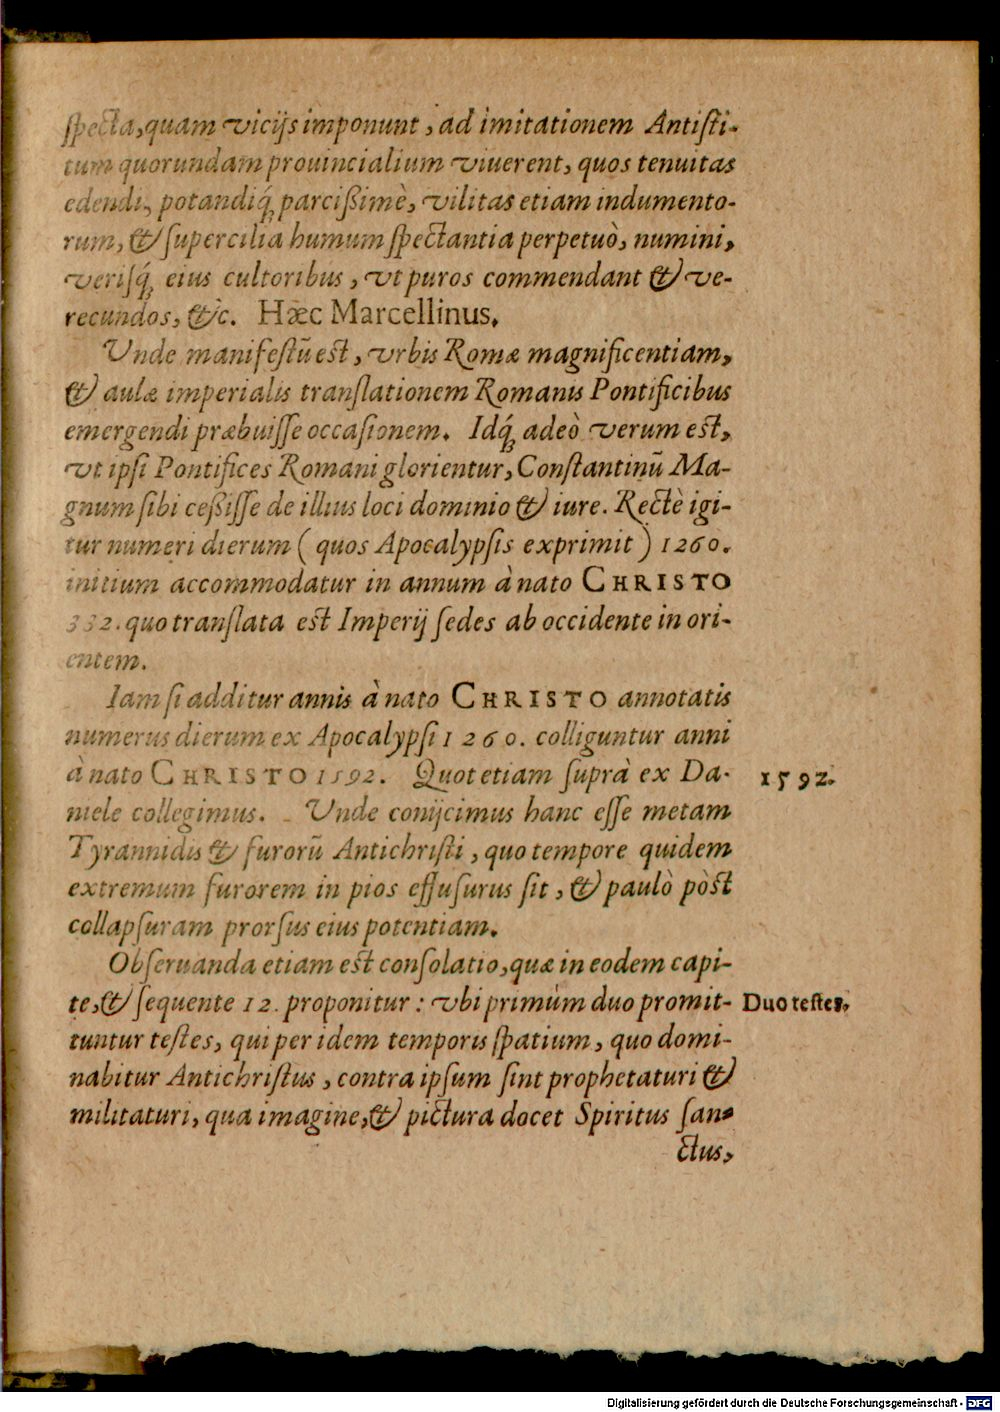 specta, quam vicijs imponunt, ad imitationem Antisti-
tum quorundam prouincialium viuerent, quos tenuitas
edendi, potandiq́; parcißimè, vilitas etiam indumento-
rum, & supercilia humum spectantia perpetuò, numini,
verisq́; eius cultoribus, vt puros commendant & ve-
recundos, &c. Hæc Marcellinus.
Unde manifestũ est, vrbis Romæ magnificentiam,
& aulæ imperialis translationem Romanis Pontificibus
emergendi præbuisse occasionem. Idq́; adeò verum est,
vt ipsi Pontifices Romani glorientur, Constantinũ Ma-
gnum sibi ceßisse de illius loci dominio & iure. Rectè igi-
tur numeri dierum ( quos Apocalypsis exprimit ) 1260.
initium accommodatur in annum à nato CHRISTO
332. quo translata est Imperij sedes ab occidente in ori-
entem.
Iam si additur annis à nato CHRISTO annotatis
numerus dierum ex Apocalypsi 1260. colliguntur anni
à nato CHRISTO 1592. Quot etiam suprà ex Da-
1592.
niele collegimus. Unde conijcimus hanc esse metam
Tyrannidis & furorũ Antichristi, quo tempore quidem
extremum furorem in pios effusurus sit, & paulò pòst
collapsuram prorsus eius potentiam.
Obseruanda etiam est consolatio, quæ in eodem capi-
te, & sequente 12. proponitur : vbi primùm duo promit-
Duo testes,
tuntur testes, qui per idem temporis spatium, quo domi-
nabitur Antichristus, contra ipsum sint prophetaturi &
militaturi, qua imagine, & pictura docet Spiritus san-
ctus,
Digitalisierung gefördert durch die Deutsche Forschungsgemeinschaft - DFG